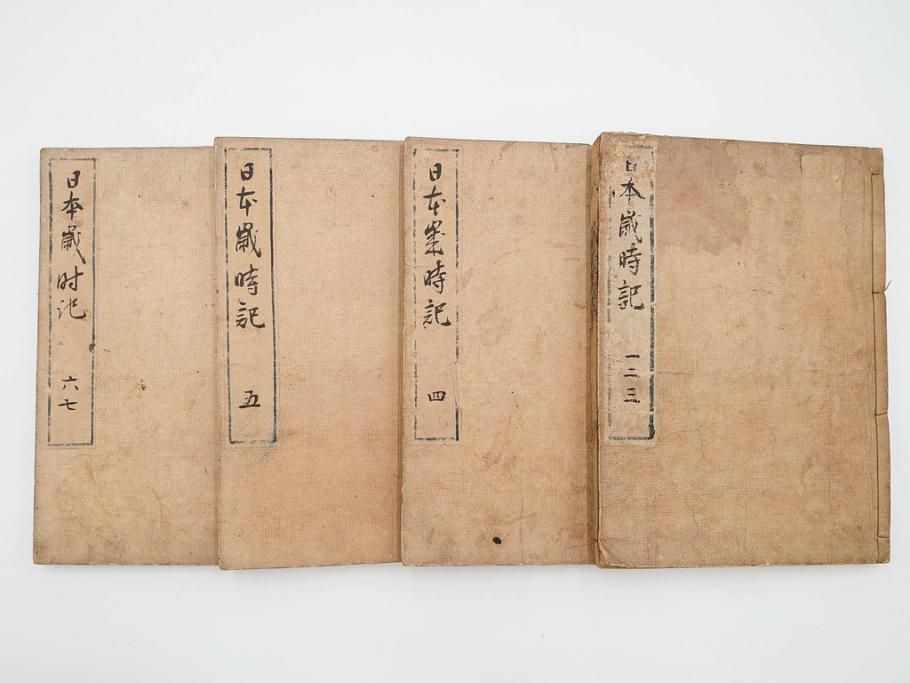 日本歳時記 一二三
日本歳時記 四
日本歳時記 五
日本歳时記 六七